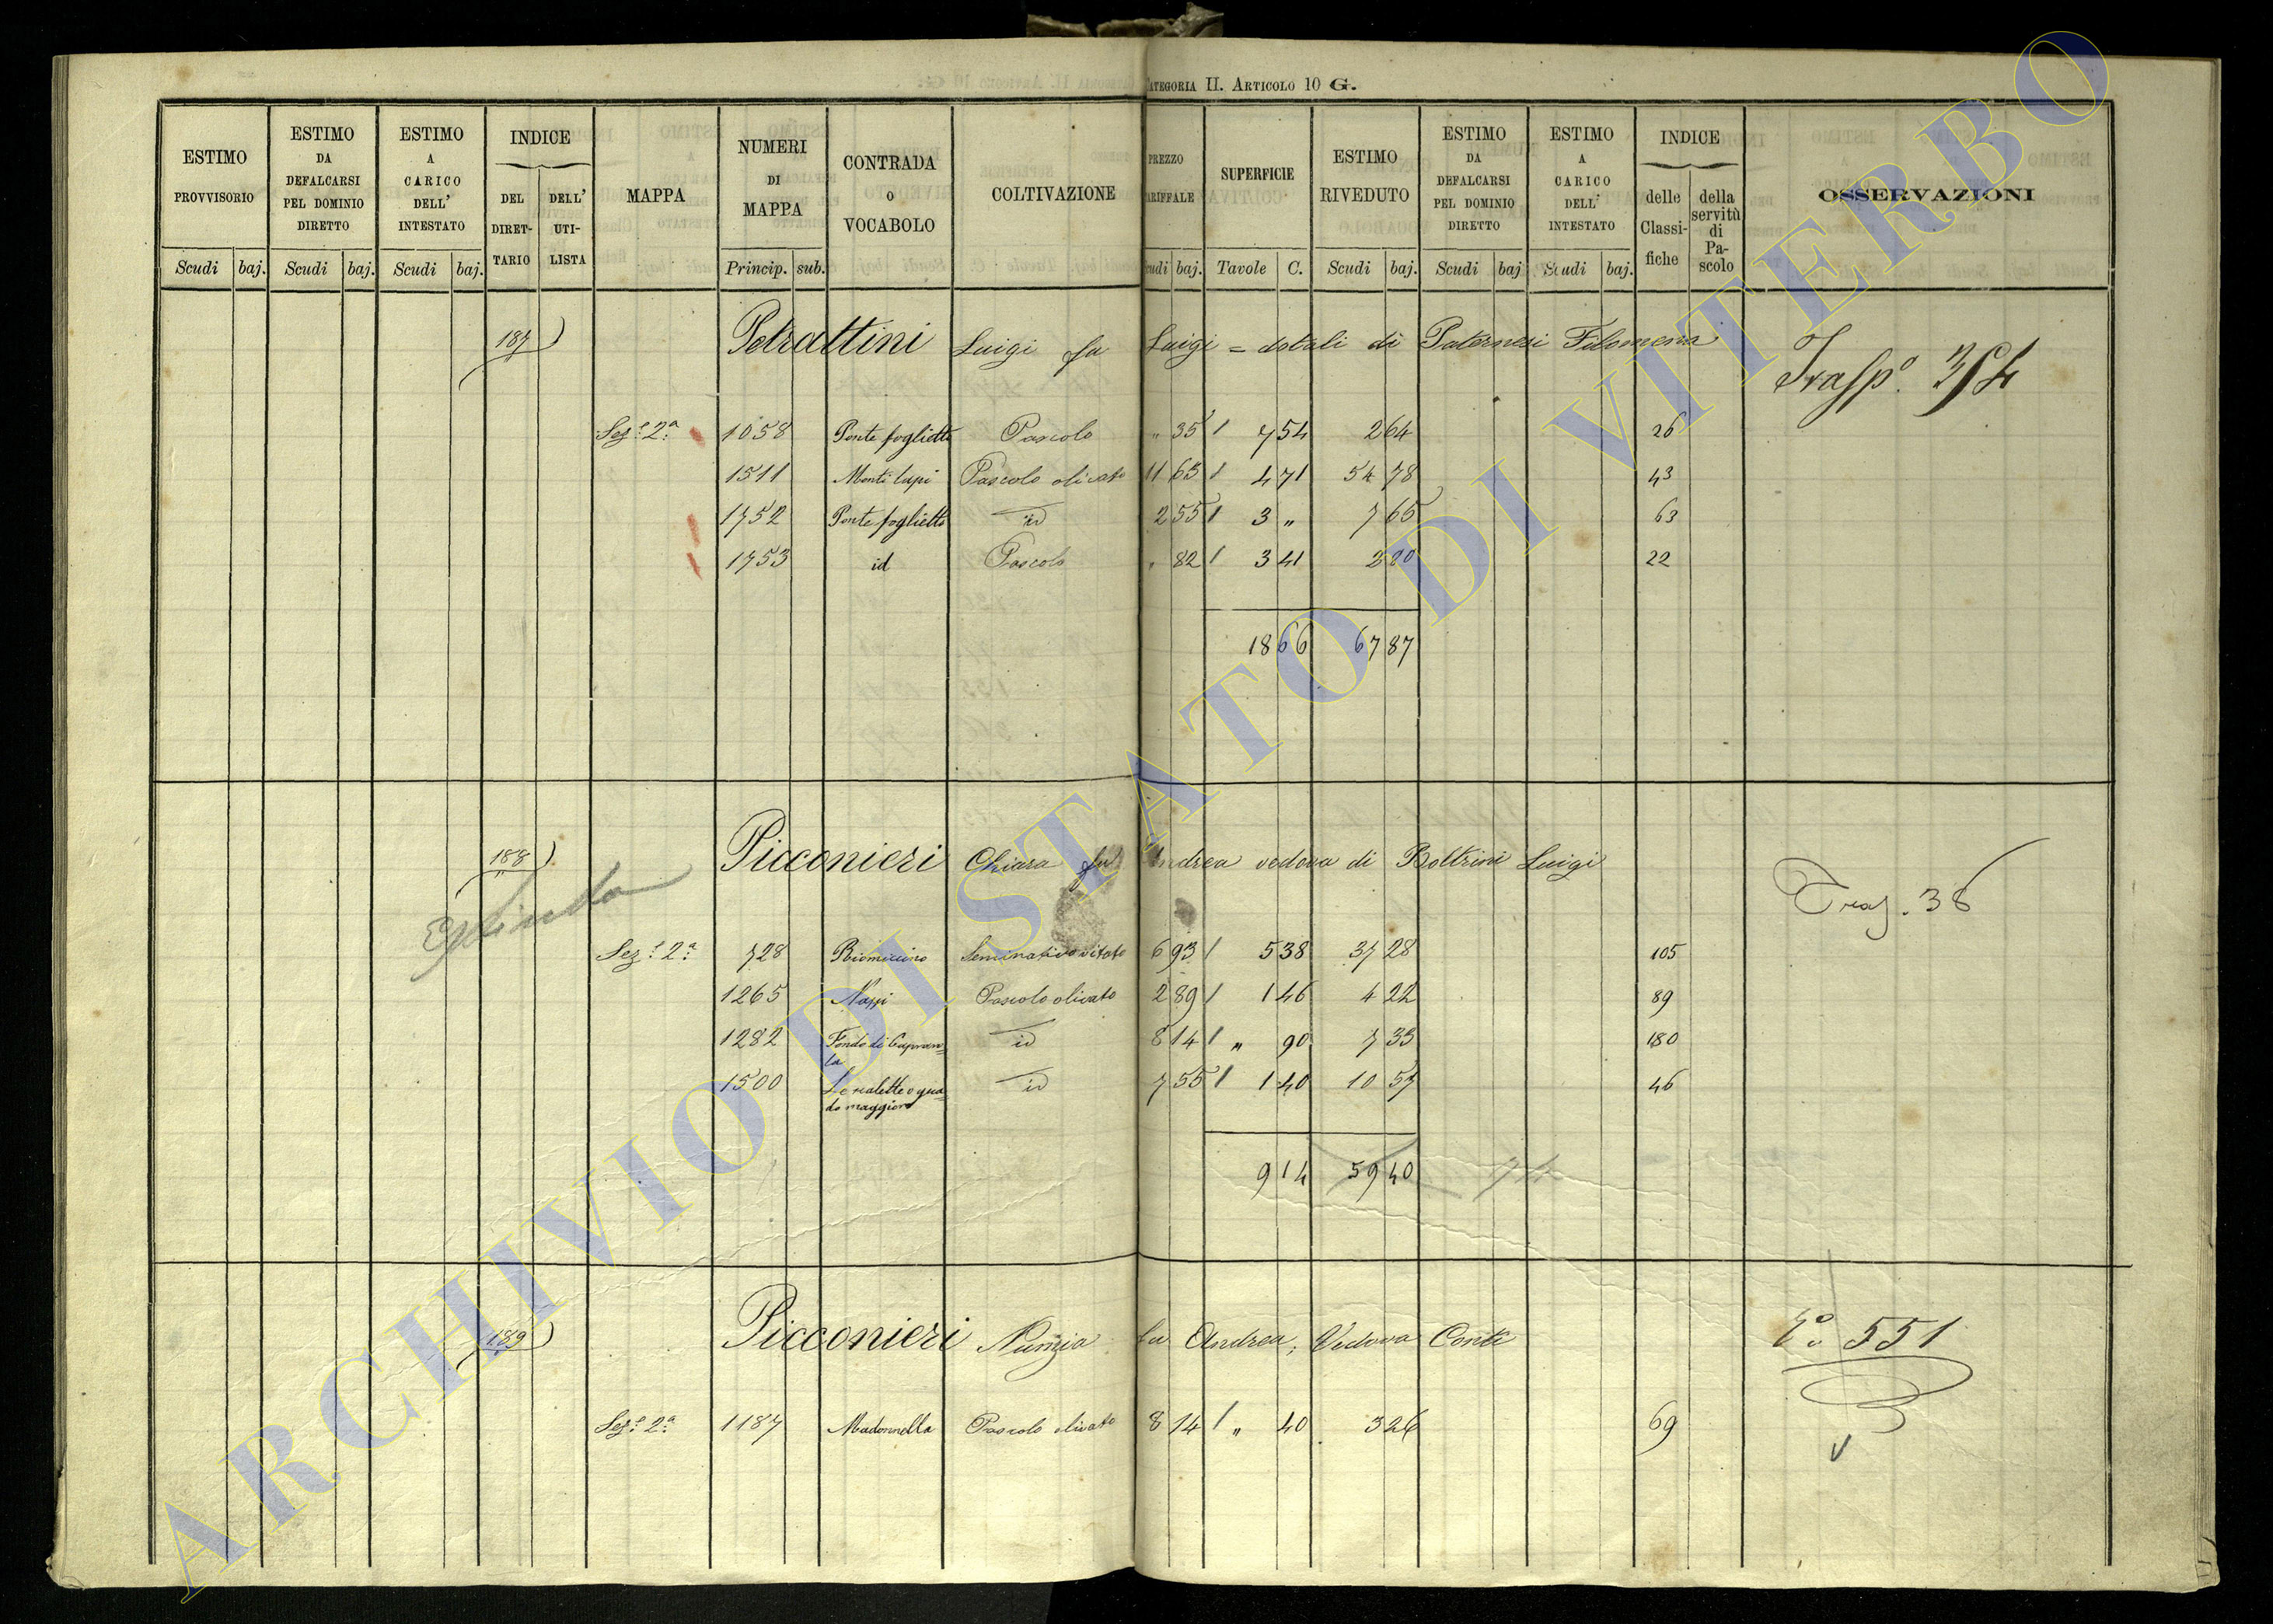 CATEGORIA II. ARTICOLO 10 G.
ESTIMO PROVVISORIO Scudi baj.
ESTIMO DA DEFALCARSI PEL DOMINIO DIRETTO Scudi baj.
ESTIMO A CARICO DELL' INTESTATO Scudi baj.
INDICE DEL DIRET-TARIO DELL' UTI-LISTA
MAPPA
NUMERI DI MAPPA Princip. sub.
CONTRADA o VOCABOLO
COLTIVAZIONE
PREZZO TARIFFALE Scudi baj.
SUPERFICIE Tavole C.
ESTIMO RIVEDUTO Scudi baj.
ESTIMO DA DEFALCARSI PEL DOMINIO DIRETTO Scudi baj
ESTIMO A CARICO DELL' INTESTATO Scudi baj.
INDICE delle Classi-fiche della servitù di Pa-scolo
OSSERVAZIONI
187) Petrattini Luigi fu Luigi = dotali di Paternesi Filomena
Trasp.o 354
Sez.e 2.a 1058 Ponte foglietto Pascolo " 35 7 54 2 64 26
1511 Monti lupi Pascolo olivato 11 63 4 71 54 78 43
1752 Ponte foglietto id 2 55 3 " 7 65 63
1753 id Pascolo " 82 3 41 2 80 22
18 66 67 87
188) Picconieri Chiara fu Andrea vedova di Boltrini Luigi
Estinta
Tras. 36
Sez.e 2.a 728 Riomicino Seminativo vitato 6 93 5 38 37 28 105
1265 Nappi Pascolo olivato 2 89 1 46 4 22 89
1282 Fondo di Capran=la id 8 14 " 90 7 33 180
1500 Le valette o gua=do maggiore id 7 55 1 40 10 57 46
9 14 59 40
189) Picconieri Nunzia fu Andrea, Vedova Conti
551
Sez.e 2.a 1187 Madonnella Pascolo olivato 8 14 " 40 3 26 69
ARCHIVIO DI STATO DI VITERBO